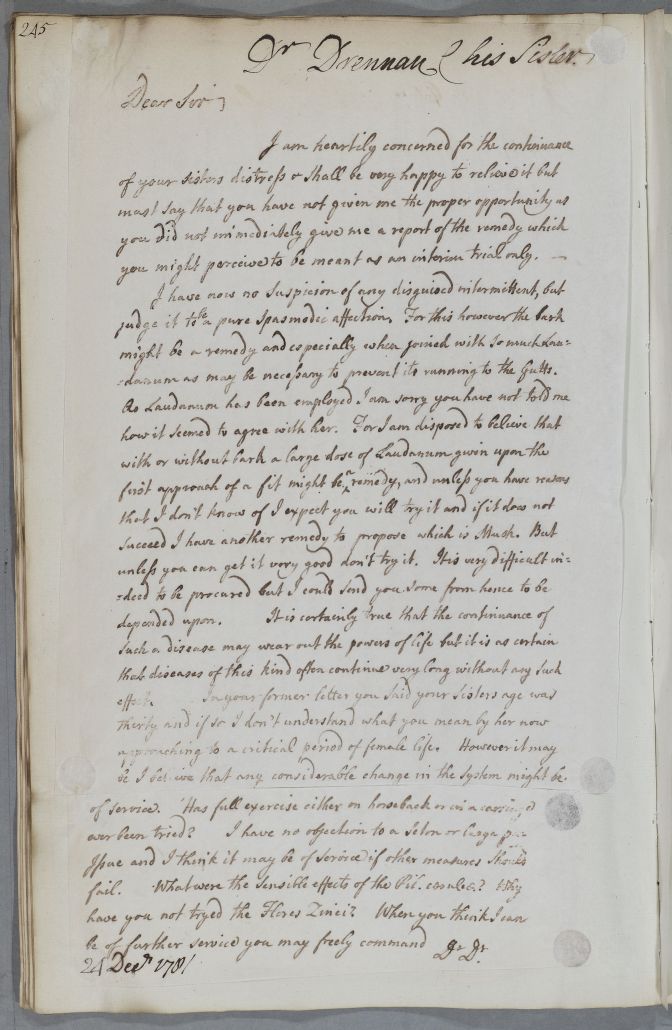 245
Dr Drennan (his Sister.)
Dear Sir
I am heartily concerned for the continuance
of your sisters distress & shall be very happy to relieve it but
must say that you have not given me the proper opportunity as
you did not immediately give me a report of the remedy which
you might perceive to be meant as an interim trial only. —
I have now no suspicion of any disguised intermittent, but
judge it to be a pure spasmodic affection. For this however the bark
might be a remedy and especially when joined with so much Lau=
=danum as may be necessary to prevent its running to the Gutts.
As Laudanum has been employed I am sorry you have not told me
how it seemed to agree with her. For I am disposed to believe that
with or without bark a large dose of Laudanum given upon the
first approach of a fit might be a remedy, and unless you have reasons
that I don't know of I expect you will try it and if it does not
succeed I have another remedy to propose which is Musk. But
unless you can get it very good don't try it. It is very difficult in=
=deed to be procured but I could send you some from hence to be
depended upon. It is certainly true that the continuance of
such a disease may wear out the powers of life but it is as certain
that diseases of this kind often continue very long without any such
effect. In your former letter you said your sisters age was
thirty and if so I don't understand what you mean by her now
approaching to a critical period of female life. However it may
be I believe that any considerable change in the system might be
of service. Has full exercise either on horseback or in a carriage
ever been tried? I have no objection to a Seton or large
Issue and I think it may be of service if other measures should
fail. What were the sensible effects of the Pil. cerulea? Why
have you not tryed the Flores Zinci? When you think I can
be of further service you may freely command Dr Dr.
24 Decr 1781